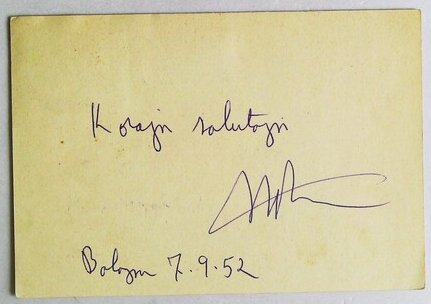 Korajn salutojn
Bologna 7.9.52